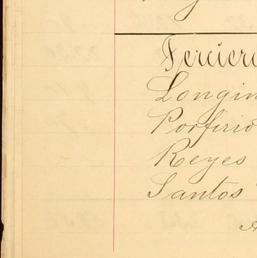 Tercier
Longin
Porfirio
Reyes
Santos